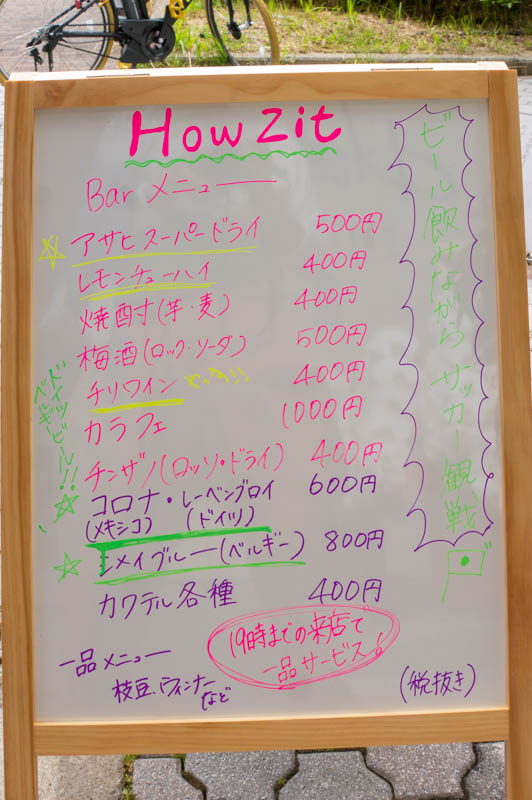 How Zit
Bar メニュー
アサヒスーパードライ 500円
レモンチューハイ 400円
焼酎(芋・麦) 400円
梅酒(ロック・ソーダ) 500円
チリワイン 400円
カラフェ 1000円
チンザノ(ロッソ・ドライ) 400円
コロナ・レーベンブロイ 600円
(メキシコ) (ドイツ)
シメイブルー(ベルギー) 800円
カクテル各種 400円
19時までの来店で
一品サービス!
一品メニュー
枝豆、ウィンナー
など
(税抜き)
ドイツ
ベルギービール!!
ビール飲みながらサッカー観戦